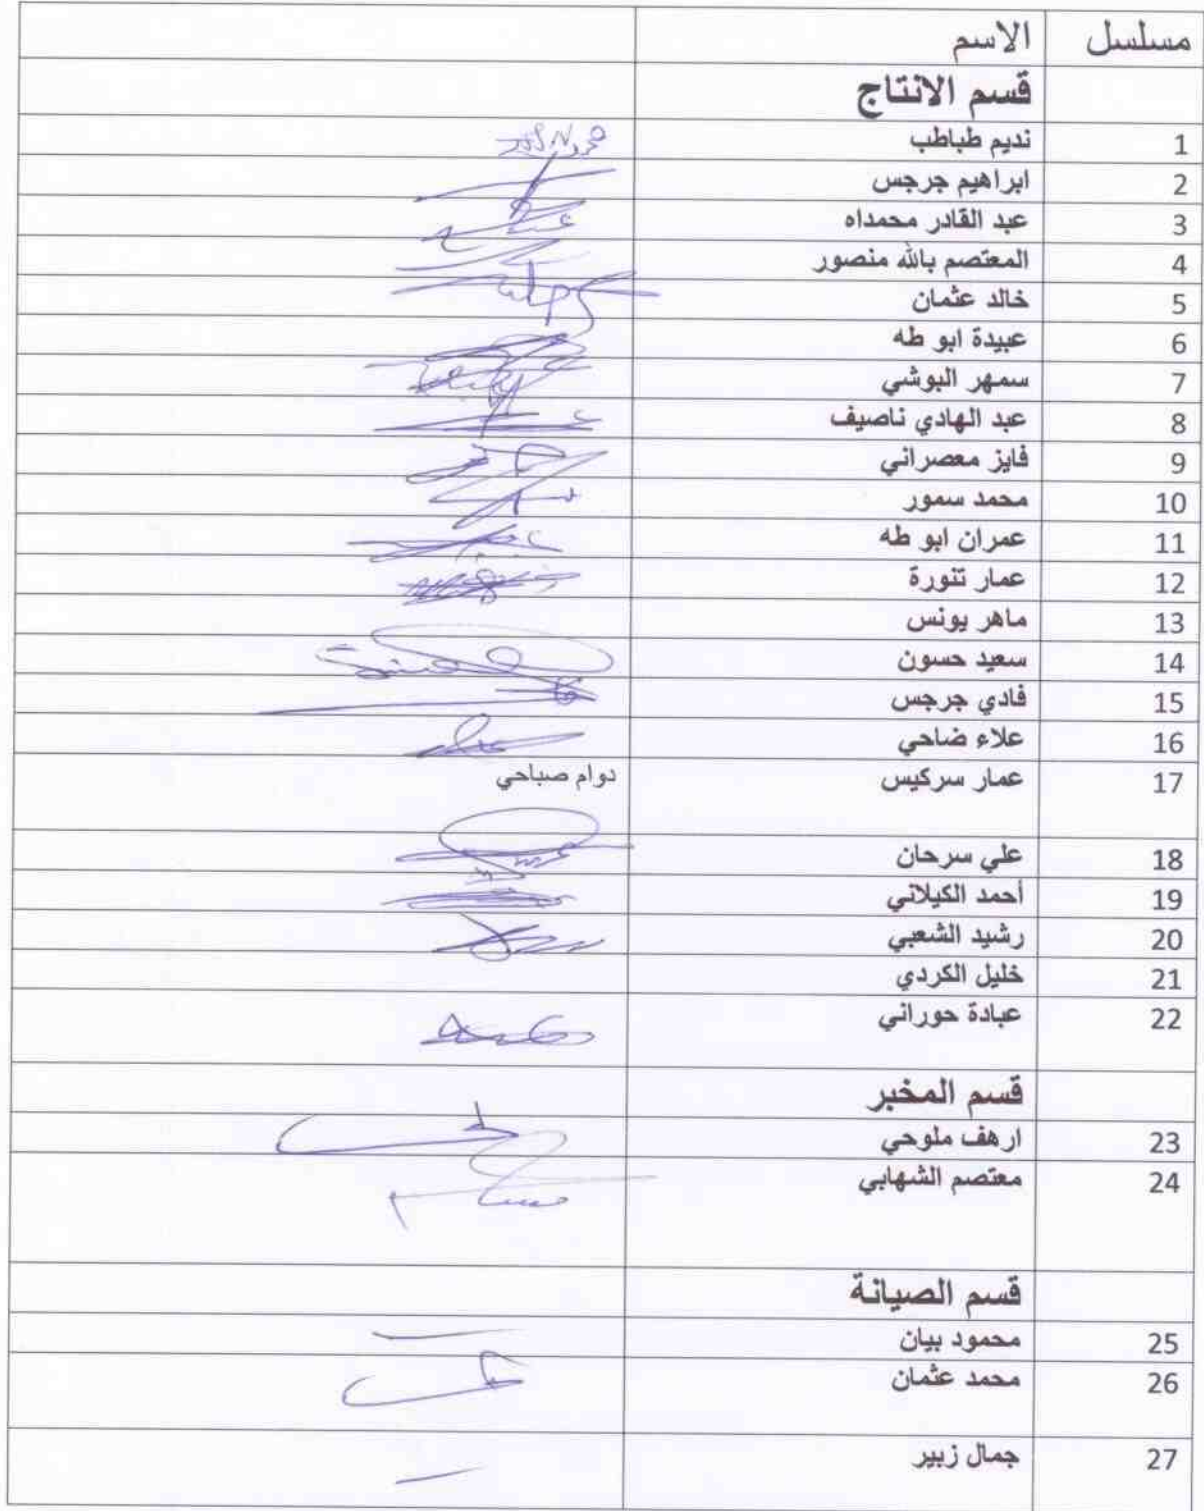 مسلسل الاسم
قسم الانتاج
1 نديم طباطب
2 ابراهيم جرجس
3 عبد القادر محمداه
4 المعتصم بالله منصور
5 خالد عثمان
6 عبيدة ابو طه
7 سمهر البوشي
8 عبد الهادي ناصيف
9 فايز معصراني
10 محمد سمور
11 عمران ابو طه
12 عمار تنورة
13 ماهر يونس
14 سعيد حسون
15 فادي جرجس
16 علاء ضاحي
17 عمار سركيس دوام صباحي
18 علي سرحان
19 أحمد الكيلاني
20 رشيد الشعبي
21 خليل الكردي
22 عبادة حوراني
قسم المخبر
23 ارهف ملوحي
24 معتصم الشهابي
قسم الصيانة
25 محمود بيان
26 محمد عثمان
27 جمال زبير